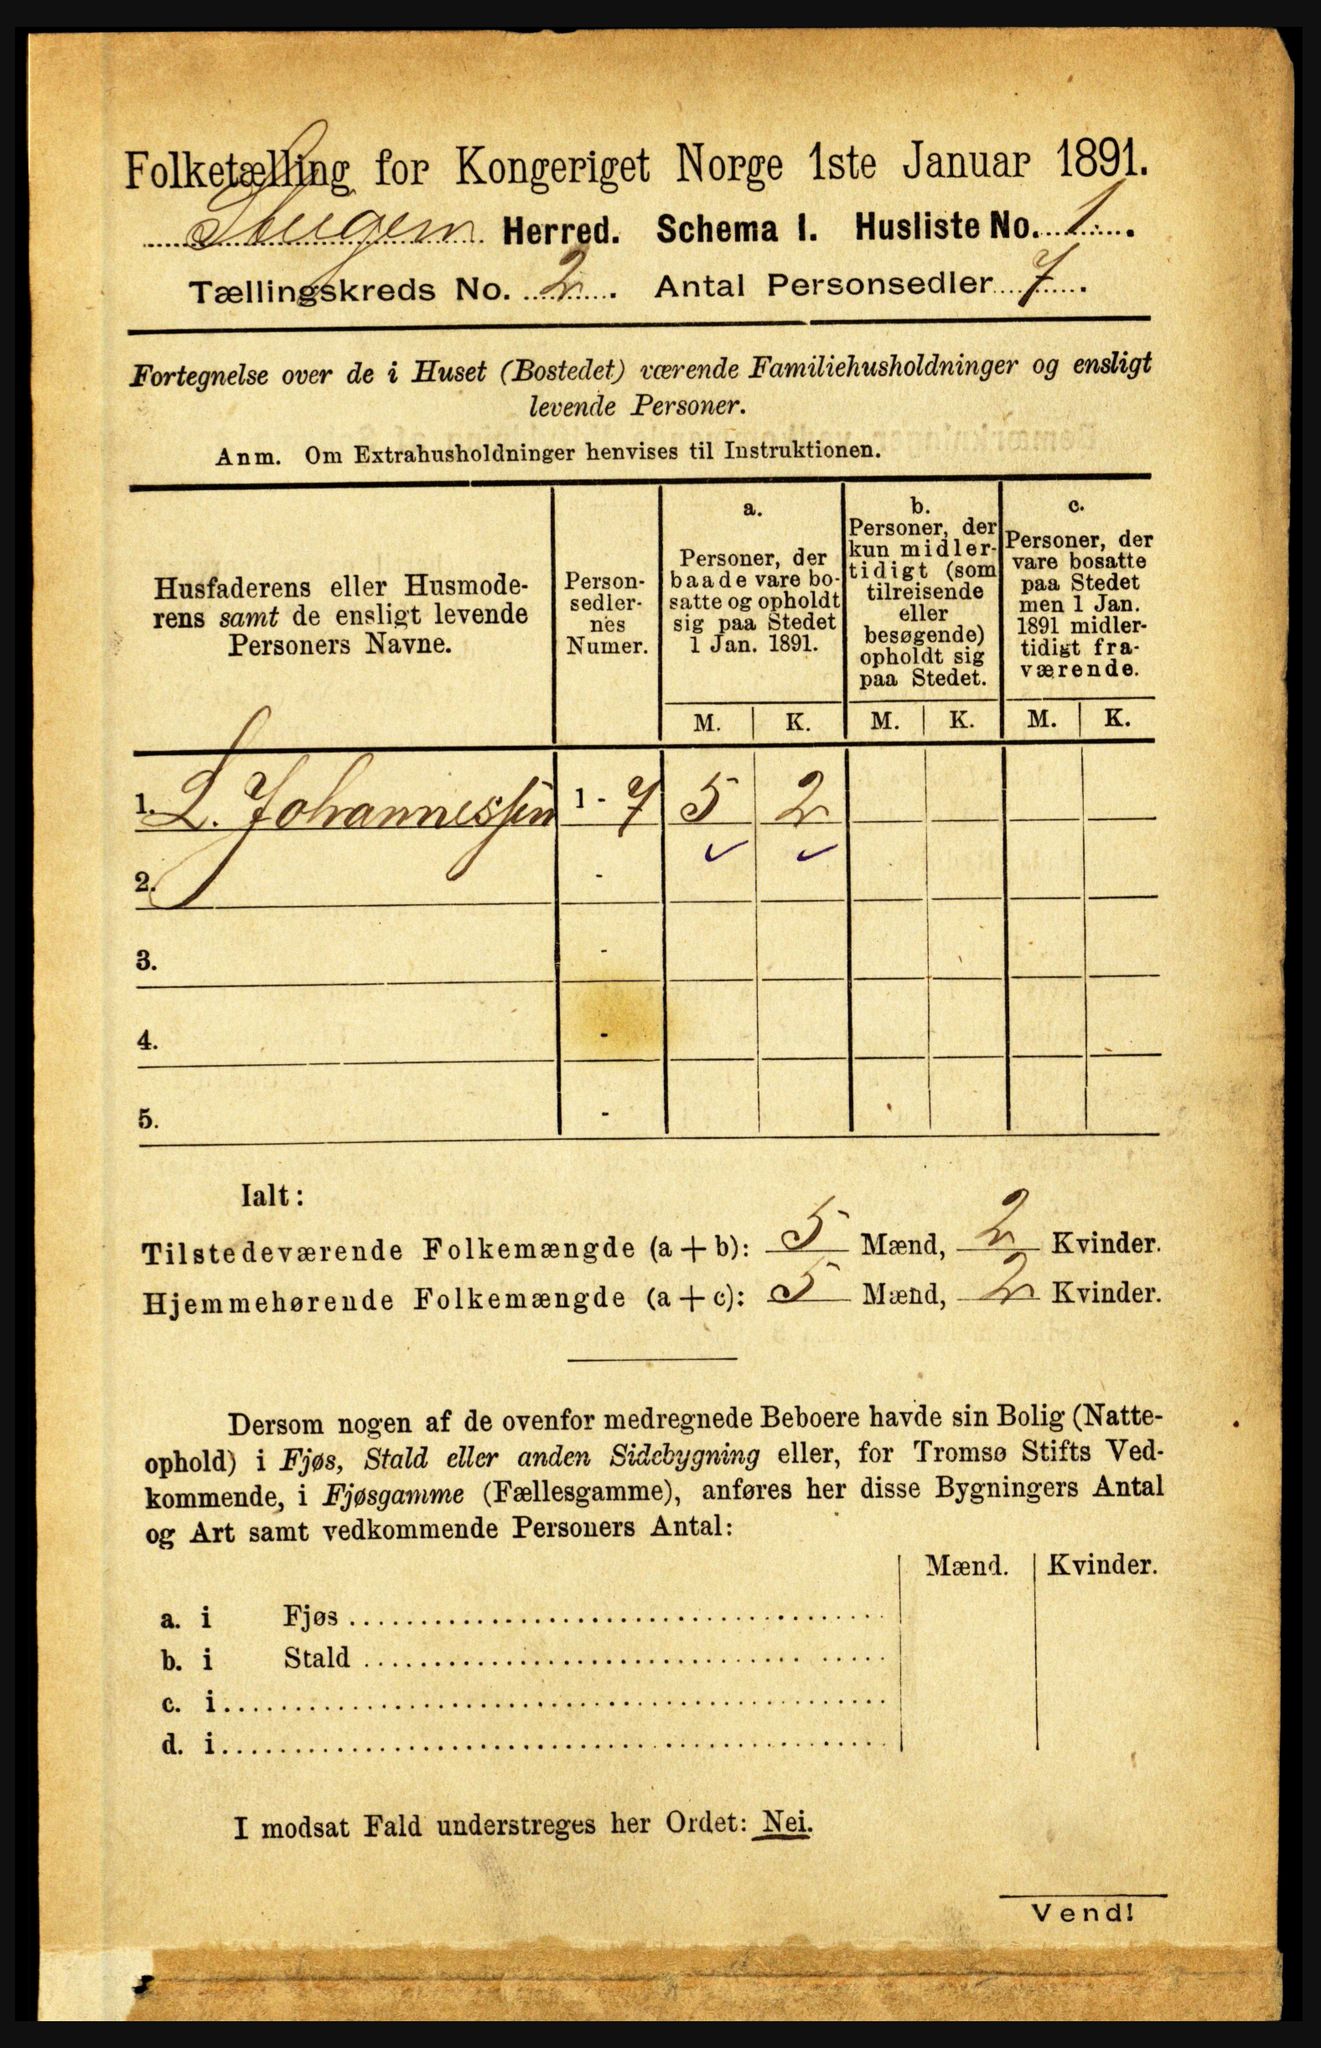 Folketælling for Kongeriget Norge 1ste Januar 1891.
Herred. Schema I. Husliste No. 1.
Tællingskreds No. 2. Antal Personsedler 7.
Fortegnelse over de i Huset (Bostedet) værende Familiehusholdninger og ensligt
levende Personer.
Anm. Om Extrahusholdninger henvises til Instruktionen.
Husfaderens eller Husmode-
rens samt de ensligt levende
Personers Navne.
Person-
sedler-
nes
Numer.
a.
Personer, der
baade vare bo-
satte og opholdt
sig paa Stedet
1 Jan. 1891.
b.
Personer, der
kun midler-
tidigt (som
tilreisende
eller
besøgende)
opholdt sig
paa Stedet.
c.
Personer, der
vare bosatte
paa Stedet
men 1 Jan.
1891 midler-
tidigt fra-
værende.
M. K. M. K. M. K.
1. L. Johannessen 1 - 7 5 2
2. -
3. -
4. -
5. -
Ialt:
Tilstedeværende Folkemængde (a + b): 5 Mænd, 2 Kvinder.
Hjemmehørende Folkemængde (a + c): 5 Mænd, 2 Kvinder.
Dersom nogen af de ovenfor medregnede Beboere havde sin Bolig (Natte-
ophold) i Fjøs, Stald eller anden Sidebygning eller, for Tromsø Stifts Ved-
kommende, i Fjøsgamme (Fællesgamme), anføres her disse Bygningers Antal
og Art samt vedkommende Personers Antal:
Mænd. Kvinder.
a. i Fjøs
b. i Stald
c. i
d. i
I modsat Fald understreges her Ordet: Nei.
Vend!